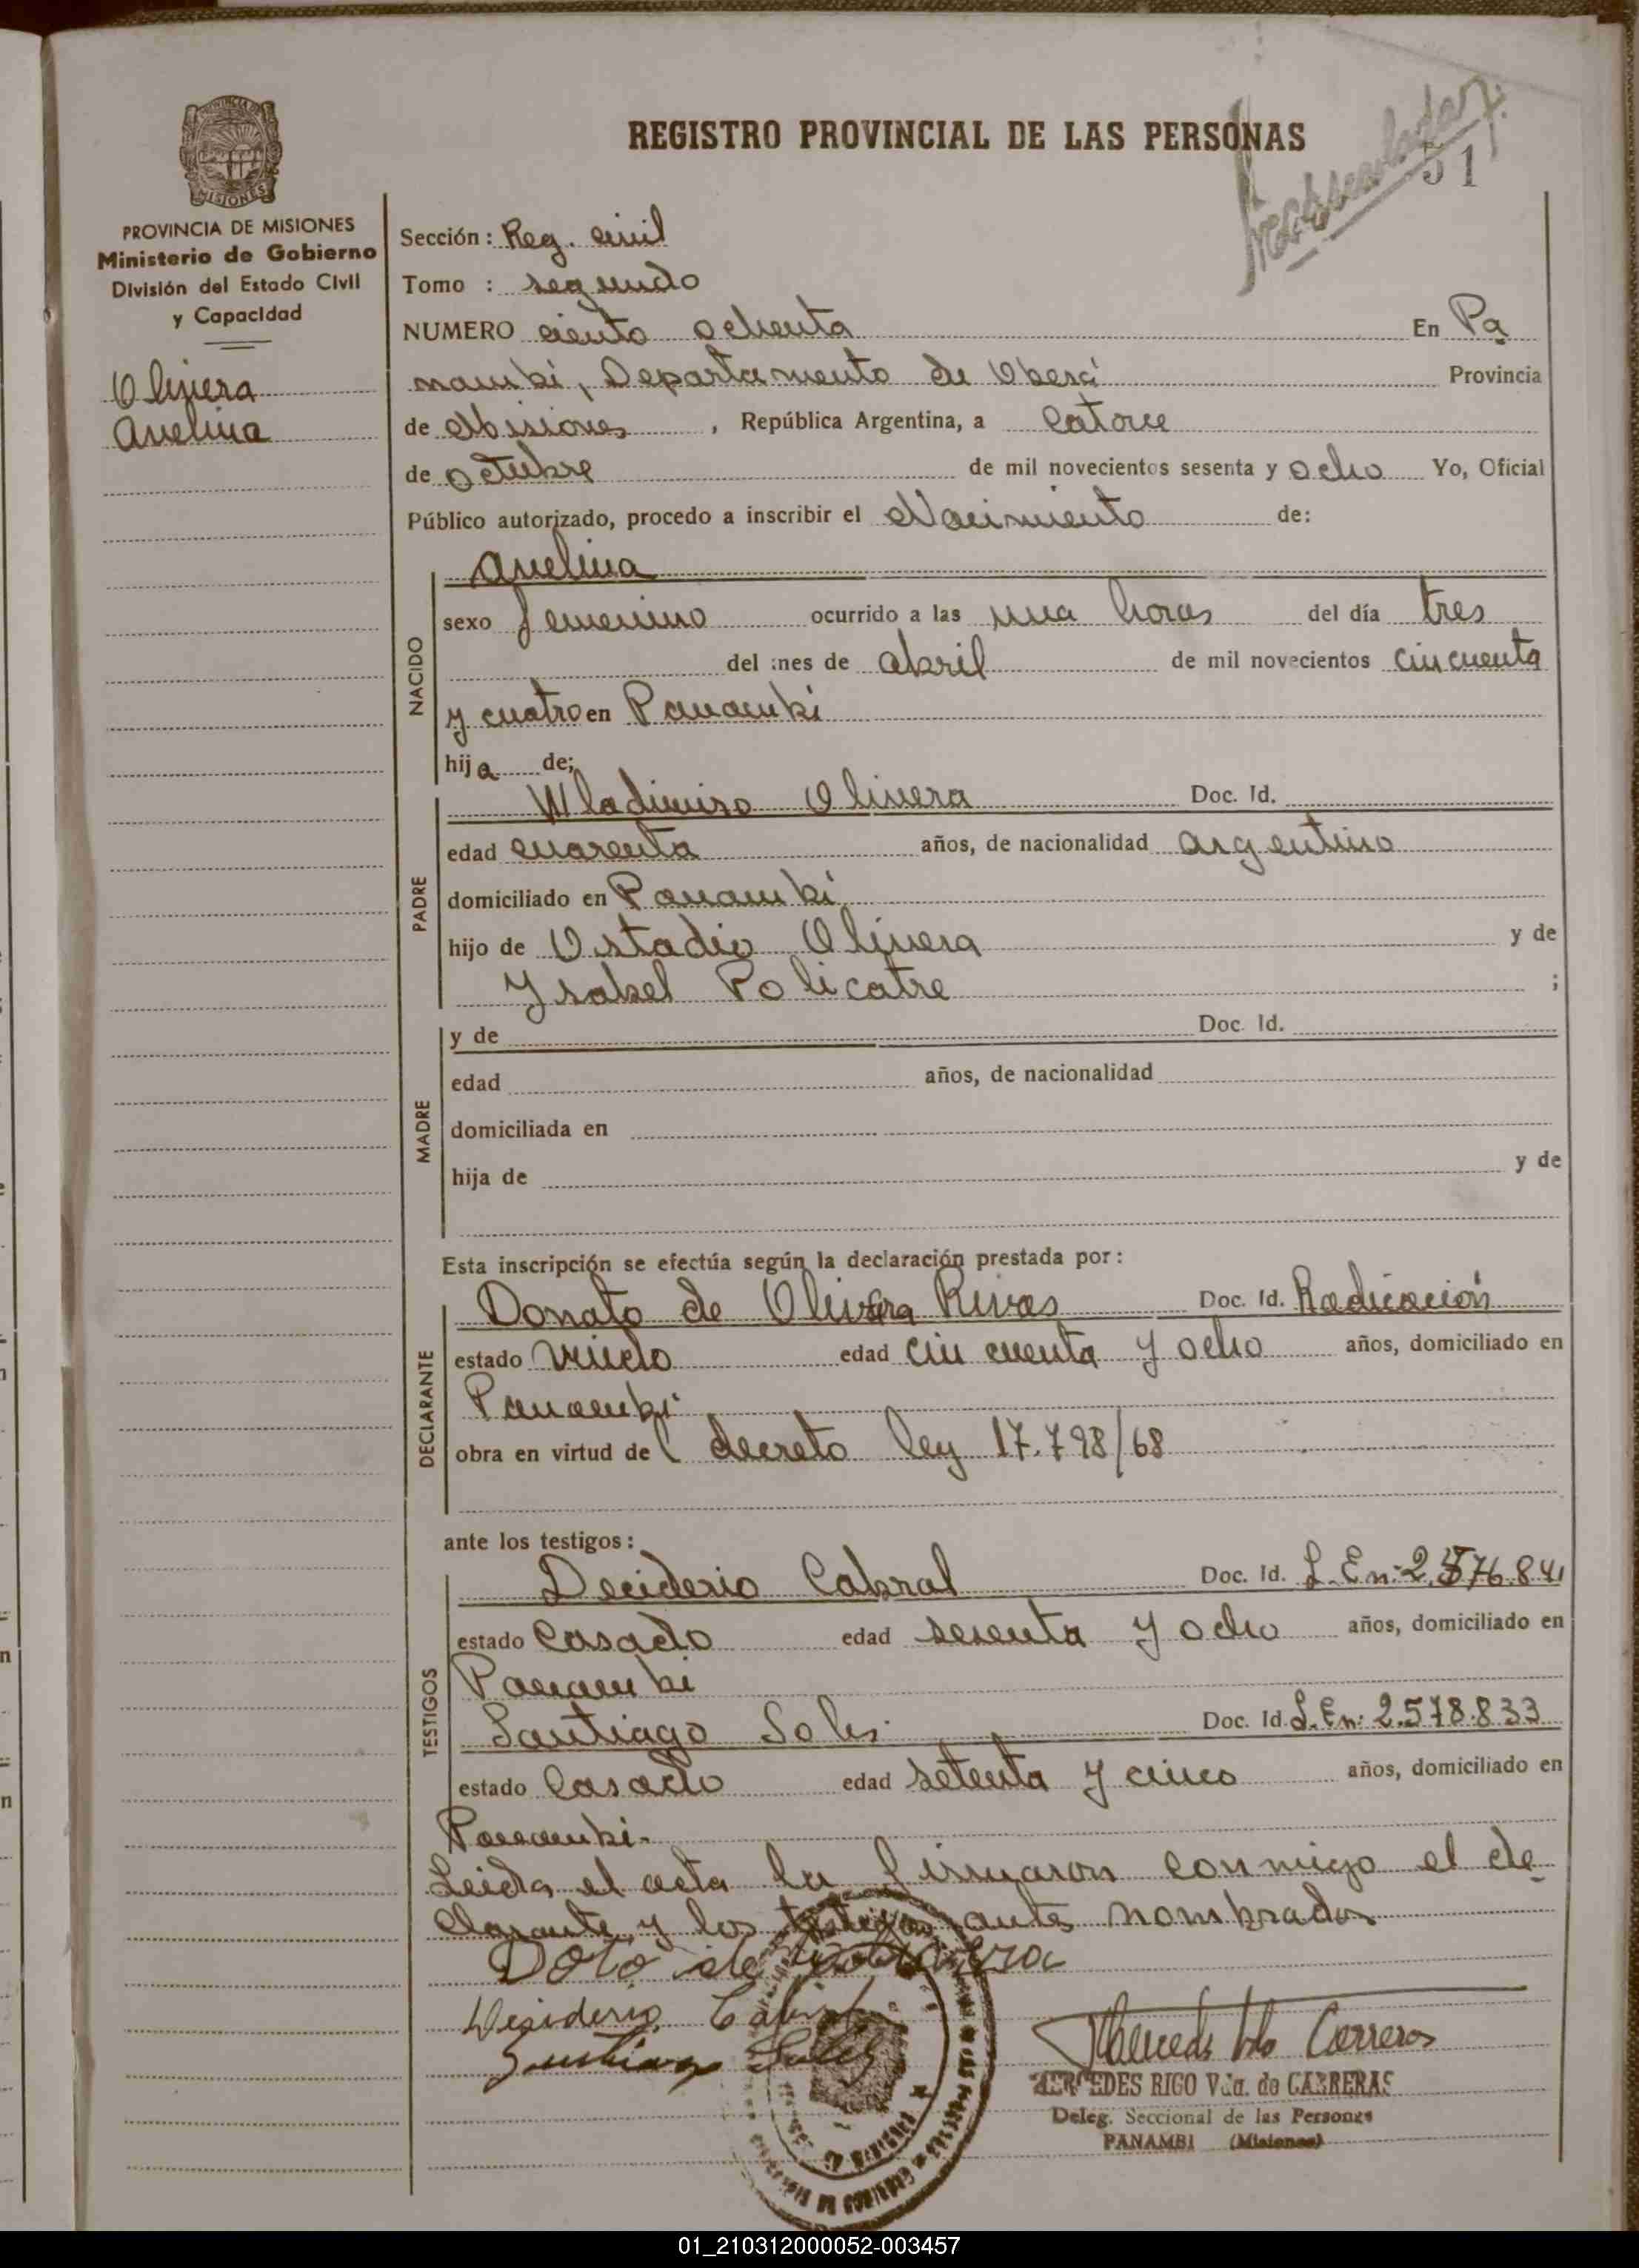 REGISTRO PROVINCIAL DE LAS PERSONAS
51
MISIONES
PROVINCIA DE MISIONES
Ministerio de Gobierno
División del Estado Civil
y Capacidad
Olivera
Avelina
Sección: Reg. civil
Tomo : segundo
NUMERO ciento ochenta En Pa
nambi, Departamento de Oberá Provincia
de Misiones, República Argentina, a Catorce
de octubre de mil novecientos sesenta y ocho Yo, Oficial
Público autorizado, procedo a inscribir el Nacimiento de:
NACIDO
Avelina
sexo femenino ocurrido a las una horas del día tres
del mes de abril de mil novecientos cincuenta
y cuatro en Panambi
hija de;
PADRE
Wladimiro Olivera Doc. Id.
edad cuarenta años, de nacionalidad argentino
domiciliado en Panambi
hijo de Ostadio Olivera y de
Ysabel Policatre ;
MADRE
y de Doc. Id.
edad años, de nacionalidad
domiciliada en
hija de y de
Esta inscripción se efectúa según la declaración prestada por:
DECLARANTE
Donato de Olivera Rivas Doc. Id. Radicación
estado viudo edad cincuenta y ocho años, domiciliado en
Panambi
obra en virtud de decreto ley 17.798/68
ante los testigos:
TESTIGOS
Deciderio Cabral Doc. Id. L. En: 2.576.841
estado Casado edad sesenta y ocho años, domiciliado en
Panambi
Santiago Solis Doc. Id. L. En: 2.578.833
estado Casado edad setenta y cinco años, domiciliado en
Panambi.
Leida el acta la firmaron conmigo el de
clarante y los testigos antes nombrados
Desiderio Cabral
Santiago Solis
MERCEDES RIGO Vda. de CARRERAS
Deleg. Seccional de las Personas
PANAMBI (Misiones)
01_210312000052-003457